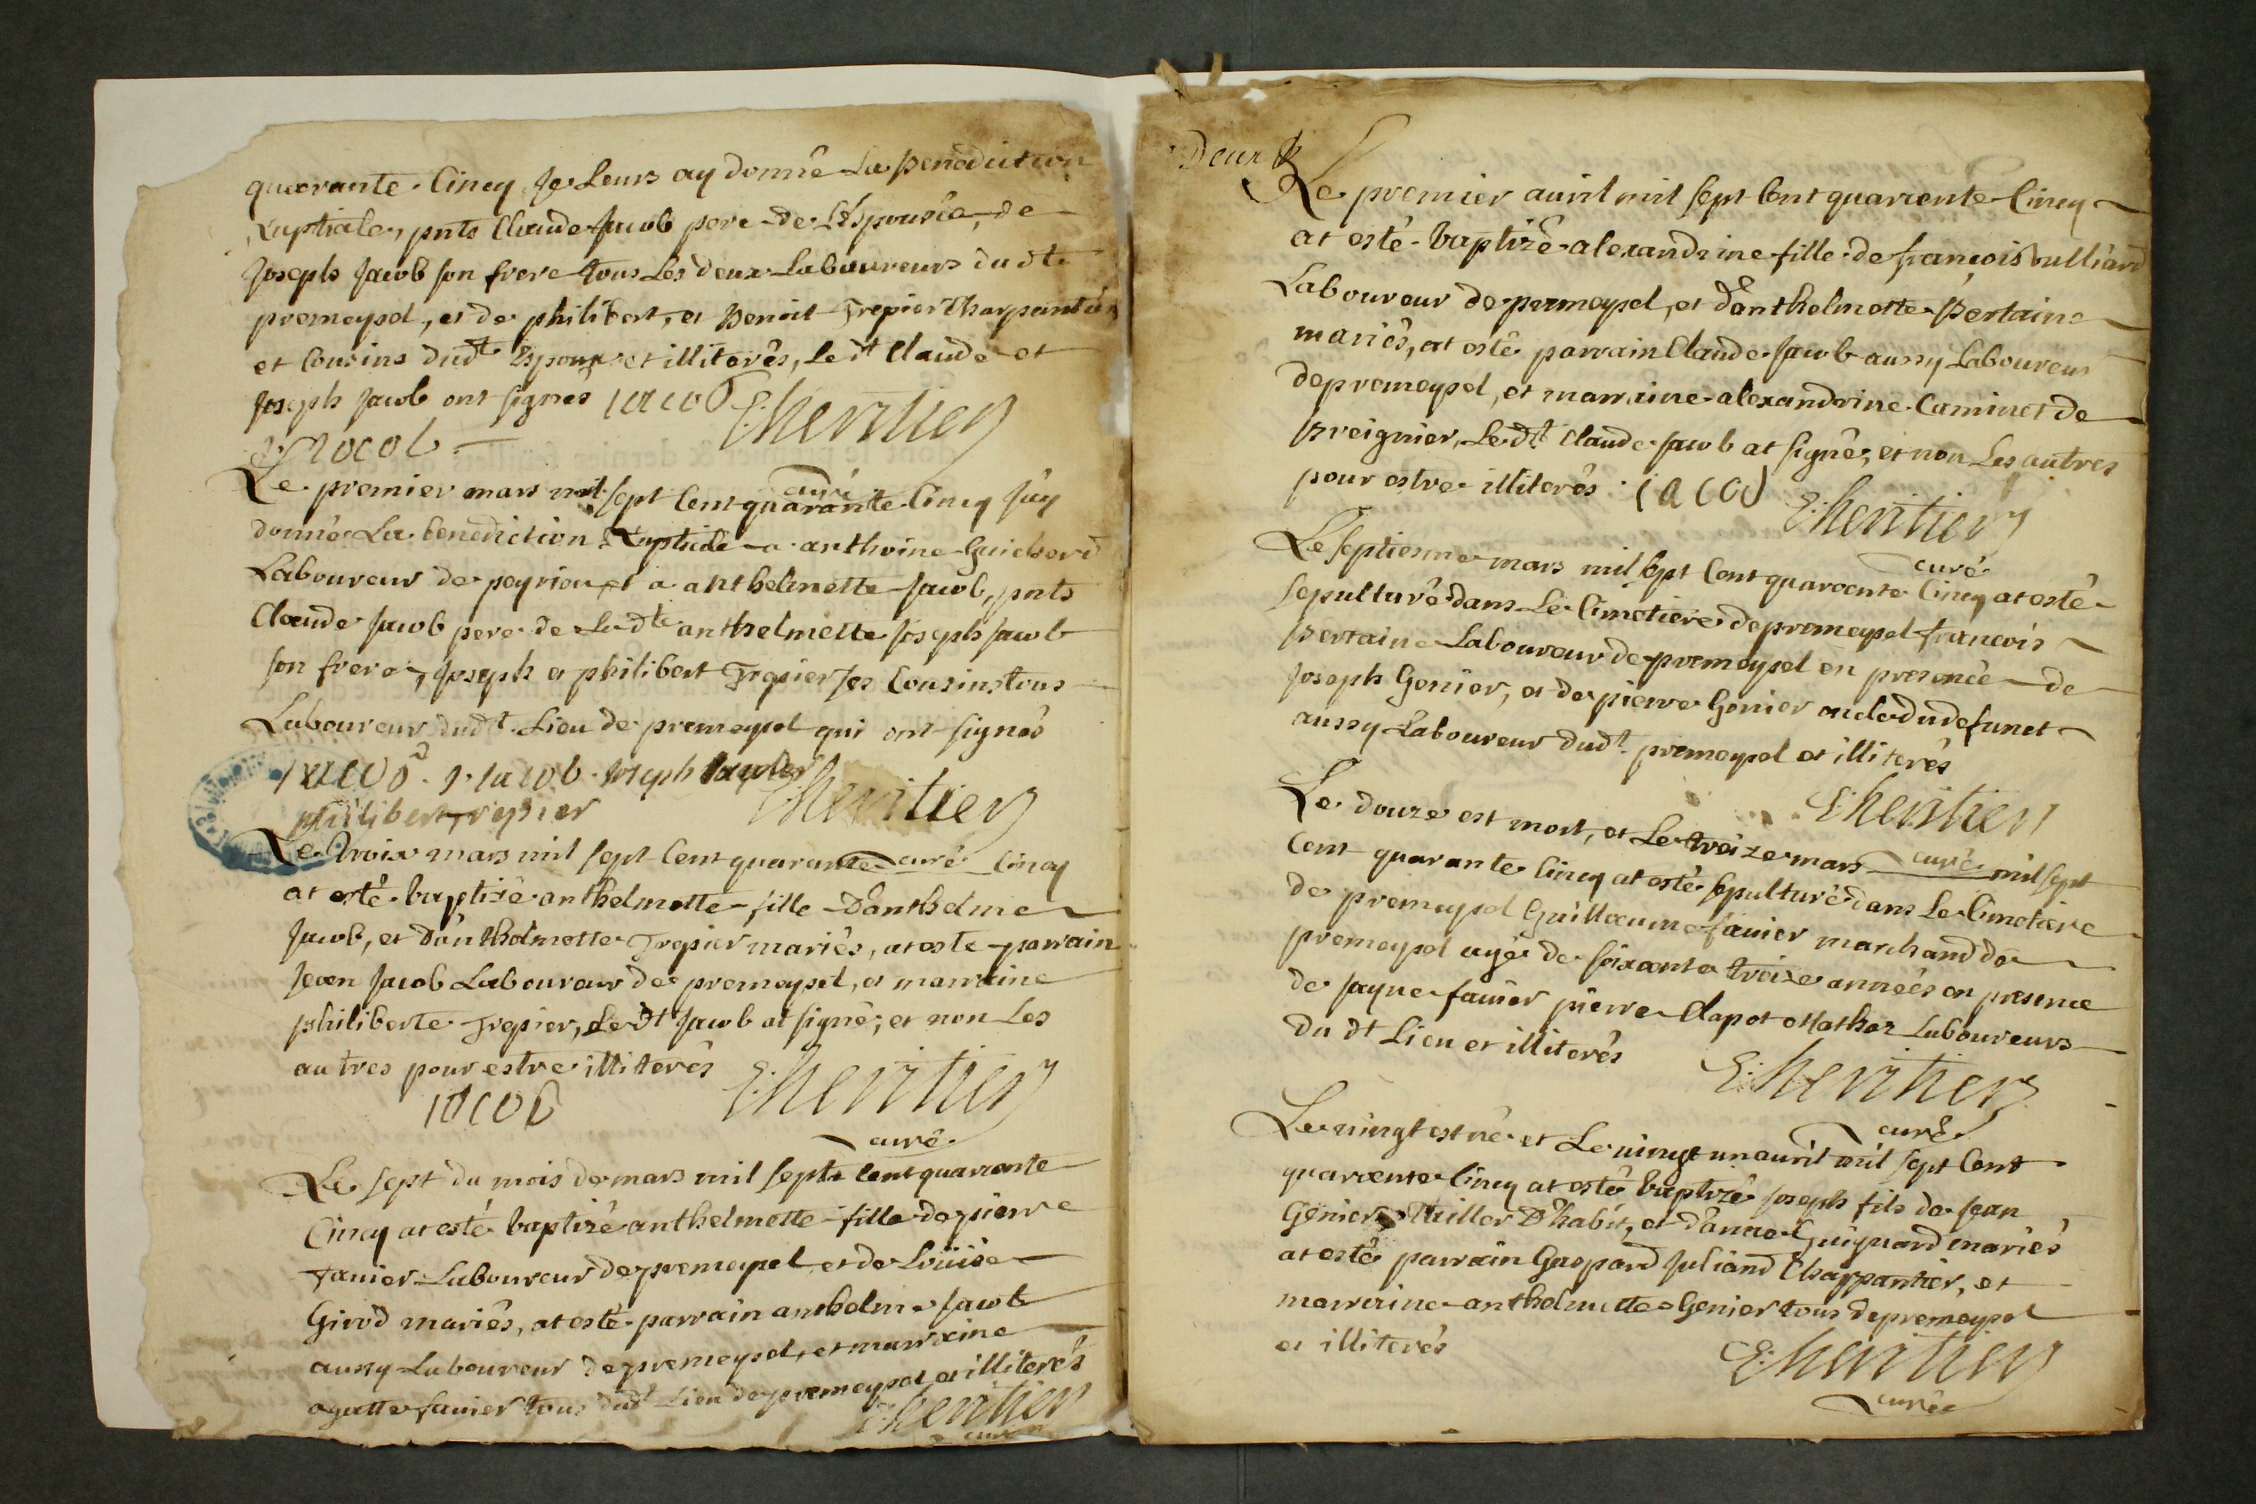 quarante Cincq Je Leurs ay donnê La benediction
Nuptiale, pnts Claude Jacob pere de Lespousée, de
Joseph Jacob son frere tous Les deux Laboureurs dudt
premeysel, et de philibert, et Benoit Trepier Charpantier
et Cousins dudt Espoux et illiterês, Le dt Claude et
Joseph Jacob ont signes iacob
J iacob E: heritier
curé
Le premier mars mil sept Cent quarante Cincq J'ay
donnée La benediction Nuptiale a anthoine Guichard
Laboureur de peyrieu et a anthelmette Jacob, pnts
Claude Jacob pere de La dte anthelmette Joseph Jacob
son frere, Joseph et philibert Trepier ses Cousins tous
Laboureur dudt Lieu de premeysel qui ont signês
iacob J. iacob Joseph
philibert trepier E: heritier
curê
Le troix mars mil sept Cent quarante Cincq
at esté baptisê anthelmette fille D'anthelme
Jacob, et d'anthelmette Trepier mariês, at este parrain
Jean Jacob Laboureur de premeysel, et marraine
philiberte Trepier, Le dt Jacob at signê, et non Les
autres pour estre illiterês E: heritier
iacob
curê
Le sept du mois de mars mil sept Cent quarante
Cincq at esté baptizê anthelmette fille de pierre
favier Laboureur de premeysel et de Loüise
Girod mariês, at estê parrain anthelme Jacob
aussy Laboureur de premeysel, et marraine
agatte favier tous dudt Lieu de premeysel et illiterés
E: heritier
curé
Deux
Le premier avril mil sept Cent quarante Cincq
at estê baptizê alexandrine fille de françois Vulliard
Laboureur de permeysel, et d'anthelmette Bertaine
mariês, at estê parrain Claude Jacob aussy Laboureur
de premeysel, et marraine alexandrine Caminet de
Breignier, Le dt Claude Jacob at signê, et non Les autres
pour estre illiterês iacob E: heritier
curé
Le septiesme mars mil sept Cent quarante Cincq at estê
sepulturê dans Le Cimetiere de premeysel francois
Bertaine Laboureur de premeysel en presence de
Joseph Genier, et de pierre Genier oncle du defunct
aussy Laboureur dudt premeysel et illiterês
E: heritier
curê
Le douze est mort, et Le treize mars mil sept
Cent quarante Cincq at estê sepulturê dans Le Cimetiere
de premeysel Guillaume favier marchand de
premeysel agé de soixante treize années en presence
de Jayne favier pierre Clapot Laboureurs
du dt Lieu et illiterês E: heritier
curê
Le vingt est nê et Le vingt un avril mil sept Cent
quarante Cincq at estê baptizê Joseph fils de Jean
Genier Tailler D'habit, et d'anne Guignard mariês
at estê parrain Gaspard Juliand Charpantier, et
marraine anthelmette Genier tous de premeysel
et illiterés E: heritier
curée